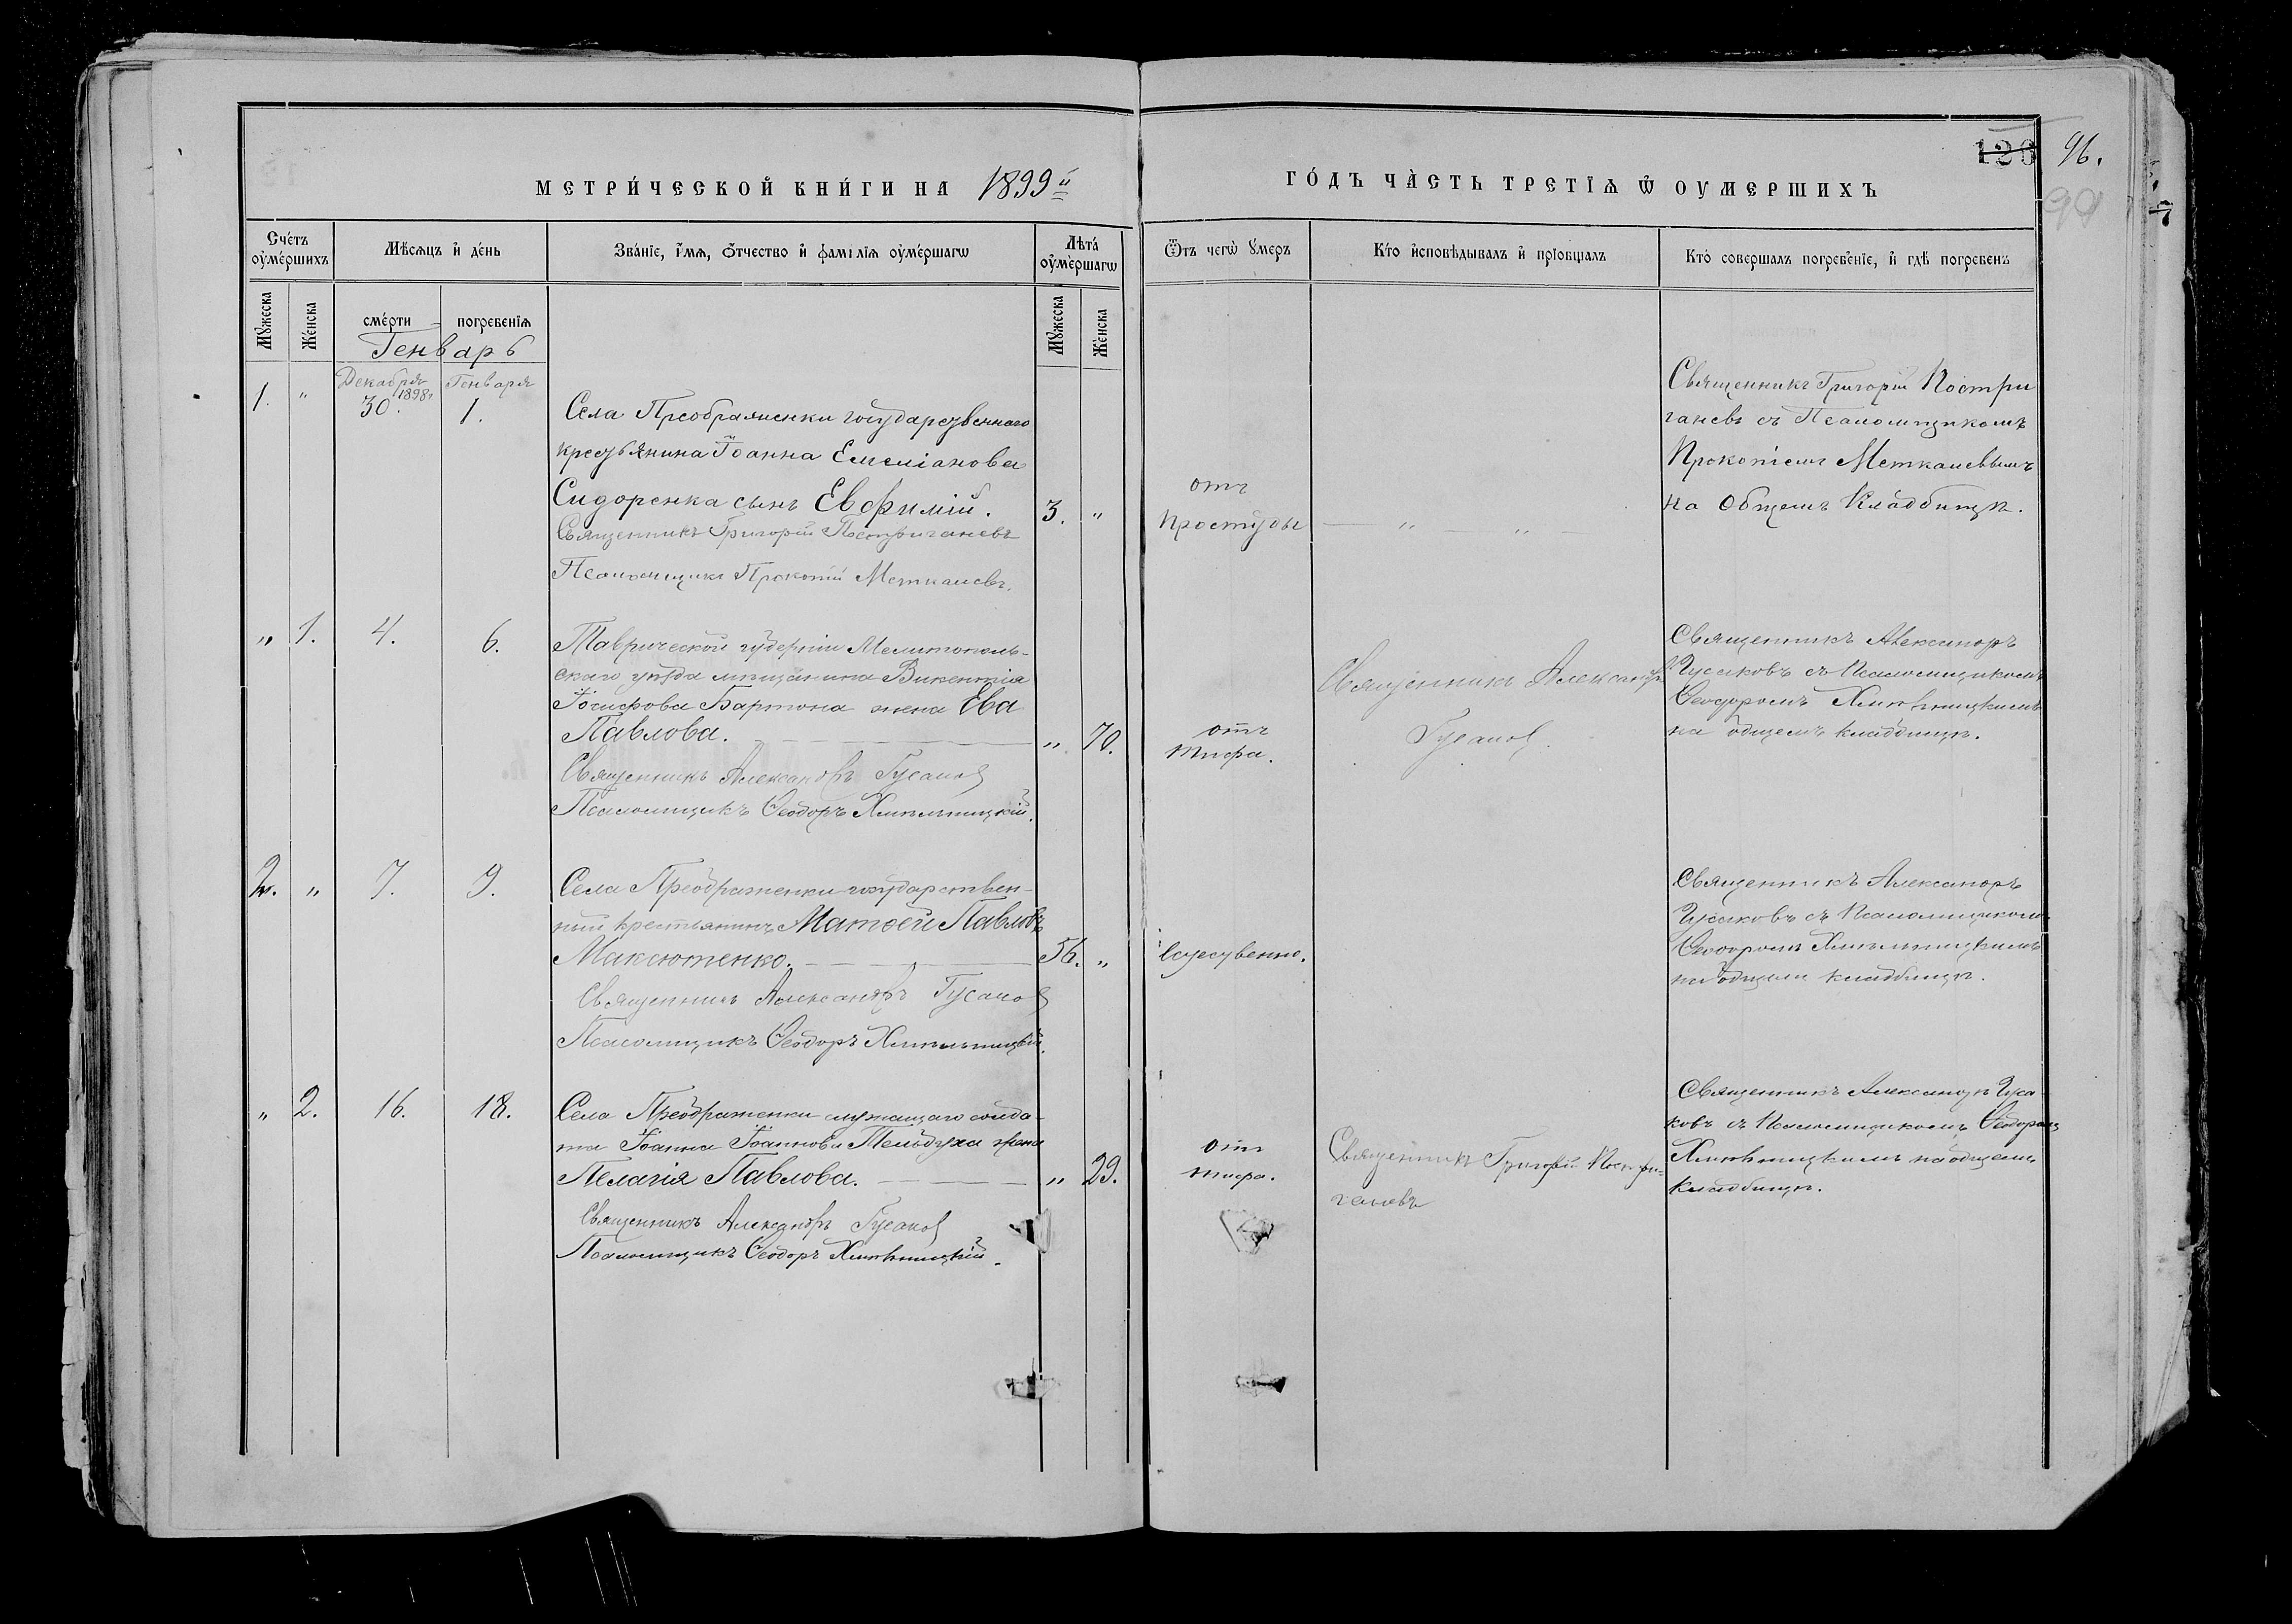 МЕТРИ́ЧЕСКОЙ КНИ́ГИ НА 1899й
ГО́ДЪ ЧА́СТЬ ТРЕТІѦ Ѡ ОУМЕРШИХЪ
126 96.
99
Счетъ оуме́ршихъ
Мѣсяцъ и де́нь
Зва́нїе, и҆́мѧ, ѻ҆́тчество и҆ фамі́лїѧ оуме́ршагѡ
Лѣта́ оуме́ршагѡ
Ѿ чегѡ̀ ᲂу҆́меръ
Кто̀ и҆сповѣ́дывалъ и҆ прїѡбща́лъ
Кто̀ соверша́лъ погребе́нїе, и҆ гдѣ̀ погребе́нъ
Мꙋжеска
Женска
сме́рти
погребе́нїѧ
Мꙋжеска
Женска
Генварь
1. " Декабря 1898г. 30. Генваря 1.
Села Преображенки государственнаго
крестьянина Іоанна Емеліанова
Сидоренка сынъ Евфимій. 3. "
Священникъ Григорій Постригачевъ
Псаломщикъ Прокопій Меткалевъ.
отъ
простуды
— " — " —
Священникъ Григорій Постри
гачевъ съ Псаломщикомъ
Прокопіемъ Меткалевымъ
на общемъ кладбищѣ.
" 1. 4. 6.
Таврической губерніи Мелитополь-
скаго уѣзда мѣщанина Викентія
Іосифова Бартона жена Ева
Павлова. " 70.
Священникъ Александръ Гусаков
Псаломщикъ Ѳеодоръ Хмѣльницкій.
отъ
тифа.
Священникъ Александръ
Гусаков.
Священникъ Александръ
Гусаковъ съ Псаломщикомъ
Ѳеодоромъ Хмѣльницкимъ
на общемъ кладбищѣ.
2. " 7. 9.
Села Преображенки государствен-
ный крестьянинъ Матѳей Павловъ
Максютенко. 56. "
Священникъ Александръ Гусаков
Псаломщикъ Ѳеодоръ Хмѣльницкій.
Естественно.
Священникъ Александръ
Гусаковъ съ Псаломщикомъ
Ѳеодоромъ Хмѣльницкимъ
на общемъ кладбищѣ.
" 2. 16. 18.
Села Преображенки служащаго солда-
та Іоанна Іоаннова жена
Пелагія Павлова. " 29.
Священникъ Александръ Гусаков
Псаломщикъ Ѳеодоръ Хмѣльницкій.
отъ
тифа.
Священникъ Григорій Постри-
гачевъ
Священникъ Александръ Гуса-
ковъ съ Псаломщикомъ Ѳеодоромъ
Хмѣльницкимъ на общемъ
кладбищѣ.